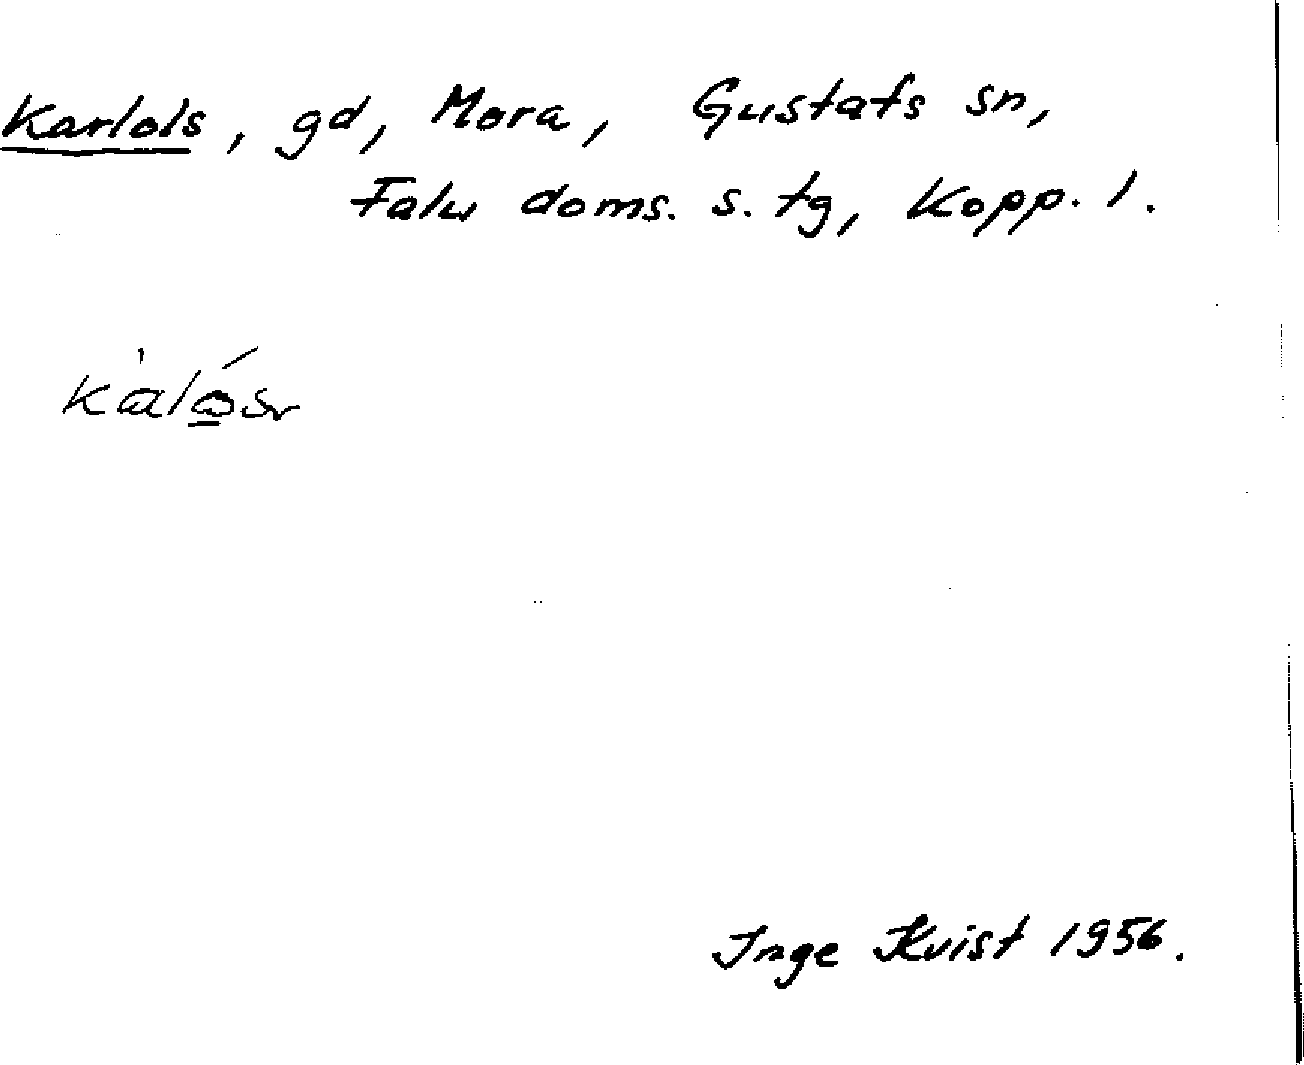 Karlols, gd, Mora, Gustafs sn,
Falu doms. s. tg, Kopp. l.
Inge Kvist 1956.